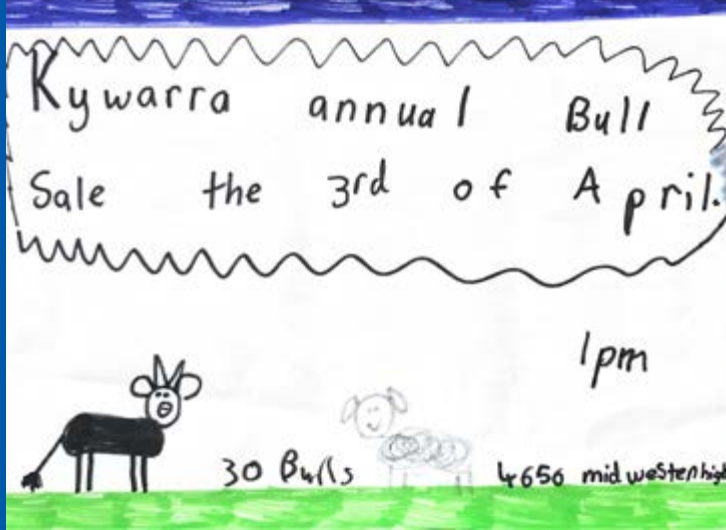 Kywarra annual Bull
Sale the 3rd of April.
1pm
30 Bulls 4656 mid westen high